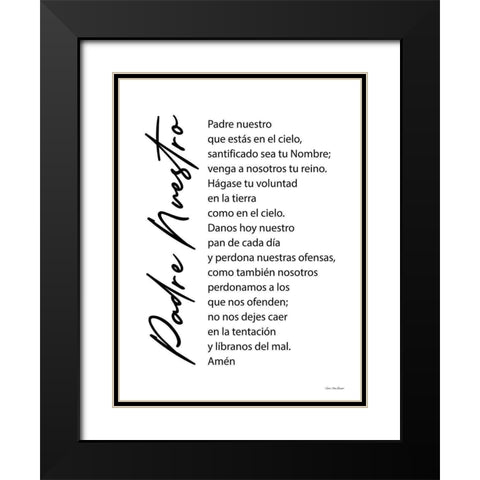 Padre Nuestro
Padre nuestro
que estás en el cielo,
santificado sea tu Nombre;
venga a nosotros tu reino.
Hágase tu voluntad
en la tierra
como en el cielo.
Danos hoy nuestro
pan de cada día
y perdona nuestras ofensas,
como también nosotros
perdonamos a los
que nos ofenden;
no nos dejes caer
en la tentación
y líbranos del mal.
Amén